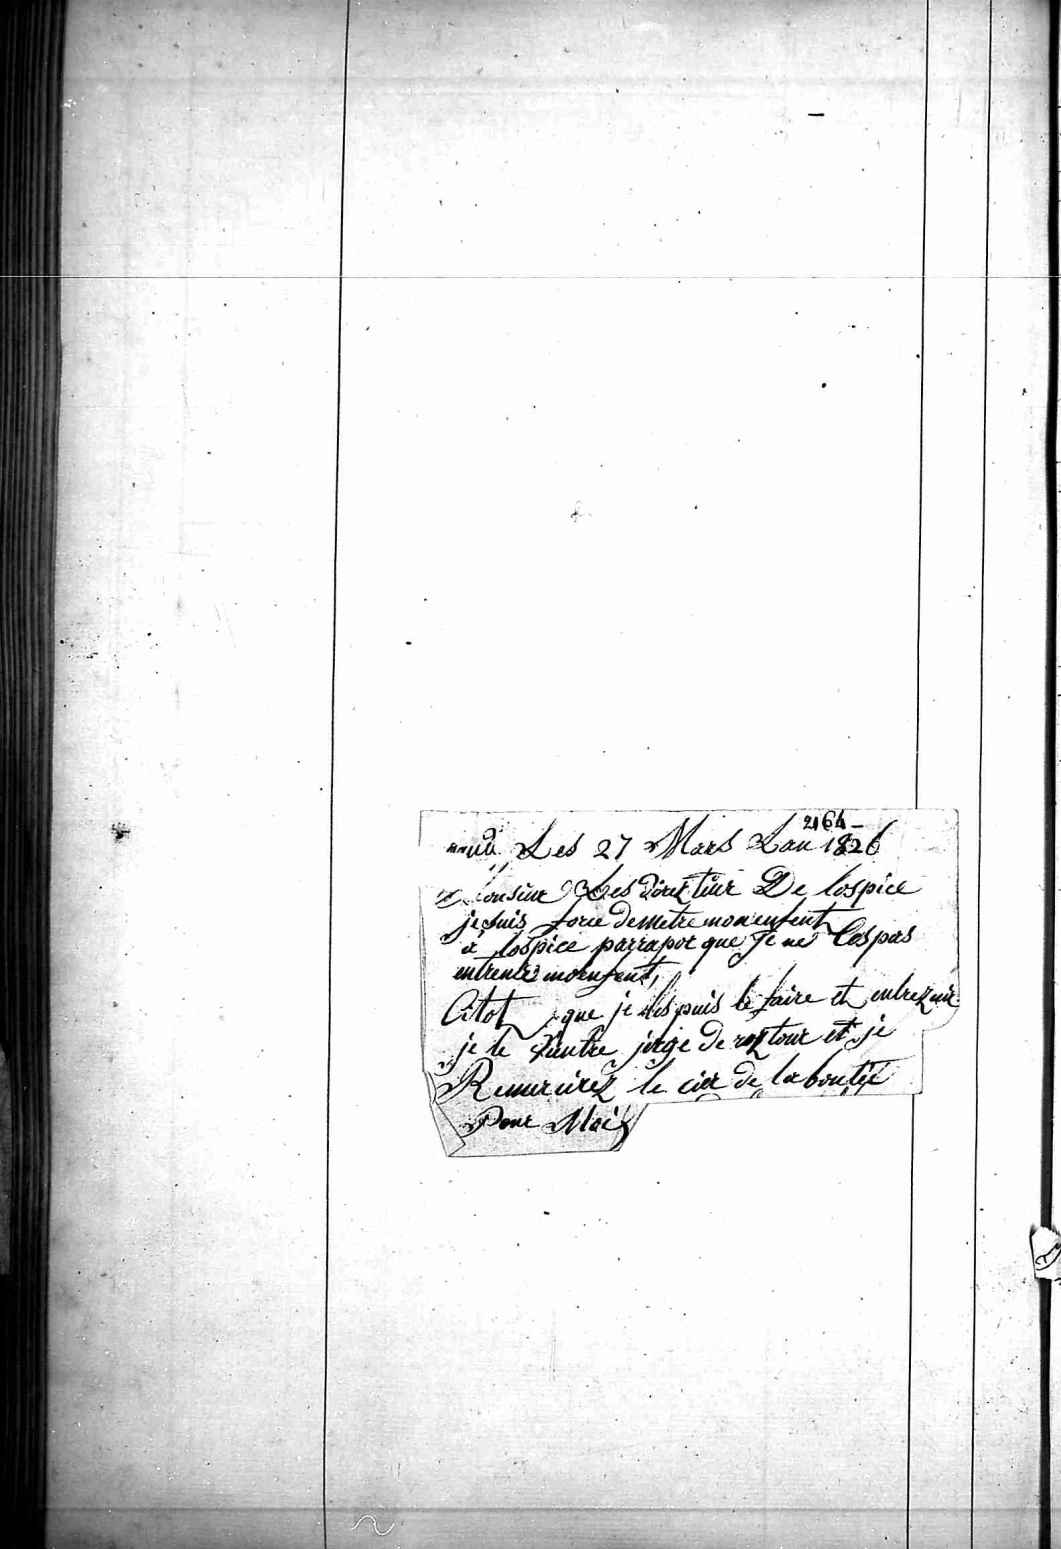 2164
Les 27 Mars Lan 1826
Monsieur Les direz teur De lospice
je suis force de metre mon enfent
à lospice parrapor que Je ne
entrenir mon enfent,
Citot que je puis le faire et entrez nir
je le de rez tour et je
Remercirez le de la boutée
Pour Moi